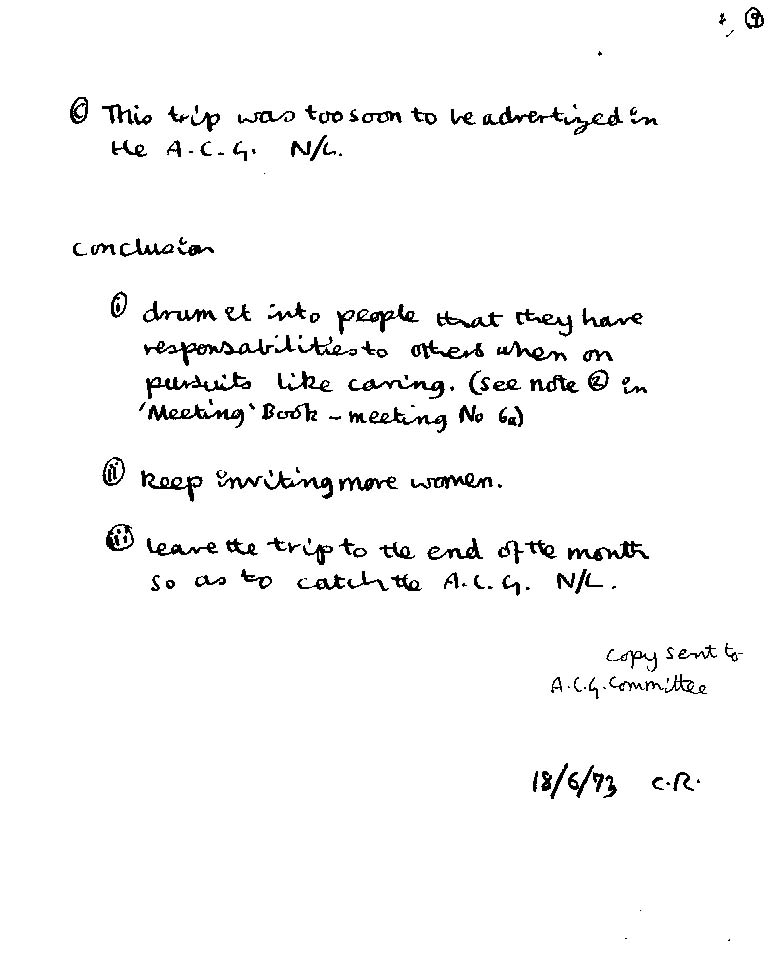 ⑨
ⓒ This trip was too soon to be advertized in
the A.C.G. N/L.
Conclusion
ⓘ drum it into people that they have
responsabilities to others when on
pursuits like caving. (see note ② in
'Meeting' Book - meeting No 6a)
ⅱ keep inviting more women.
ⅲ leave the trip to the end of the month
so as to catch the A.C.G. N/L.
Copy sent to
A.C.G. Committee
18/6/73 C.R.